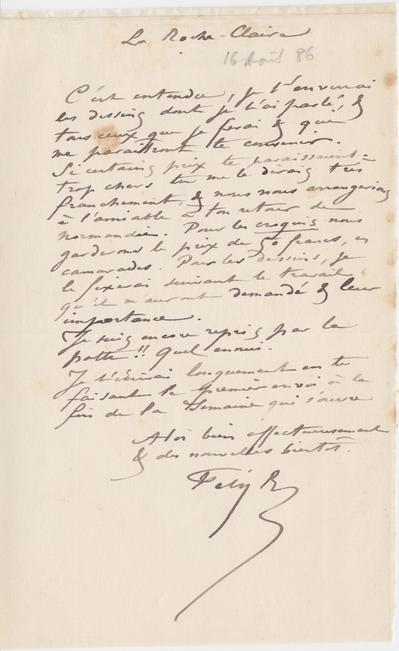 La Roche-Claire
16 Août 86
C'est entendu, je t'enverrai
les dessins dont je t'ai parlé, &
tous ceux que je ferai & que
me paraîtront te convenir.
Si certains prix te paraissaient
trop chers tu me le dirais très
franchement, & nous nous arrangerions
à l'amiable à ton retour de
normandie. Pour les croquis nous
garderons le prix de 50 francs, en
camarades. Pour les dessins, je
le fixerai suivant le travail
qu'ils m'auront demandé & leur
importance.
Je suis encore repris par la
patte!! Quel ennui.
Je t'écrirai longuement en te
faisant le premier envoi à la
fin de la Semaine qui s'ouvre
A toi bien affectueusement
& des nouvelles bientôt.
Fély R